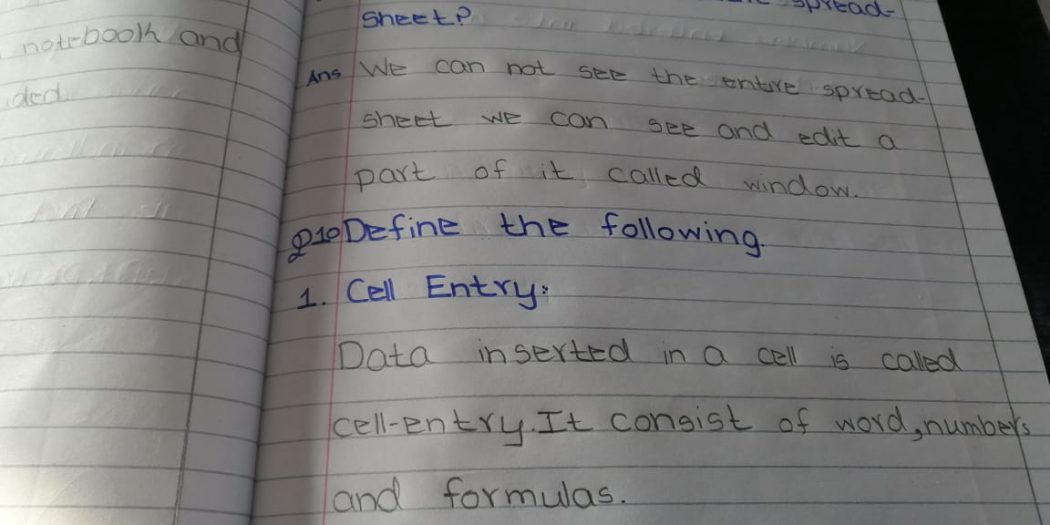 notebook and
ded
spread-
sheet?
Ans We can not see the entire spread-
sheet we can see and edit a
part of it called window.
Q10 Define the following.
1. Cell Entry:
Data inserted in a cell is called
cell-entry. It consist of word, numbers
and formulas.